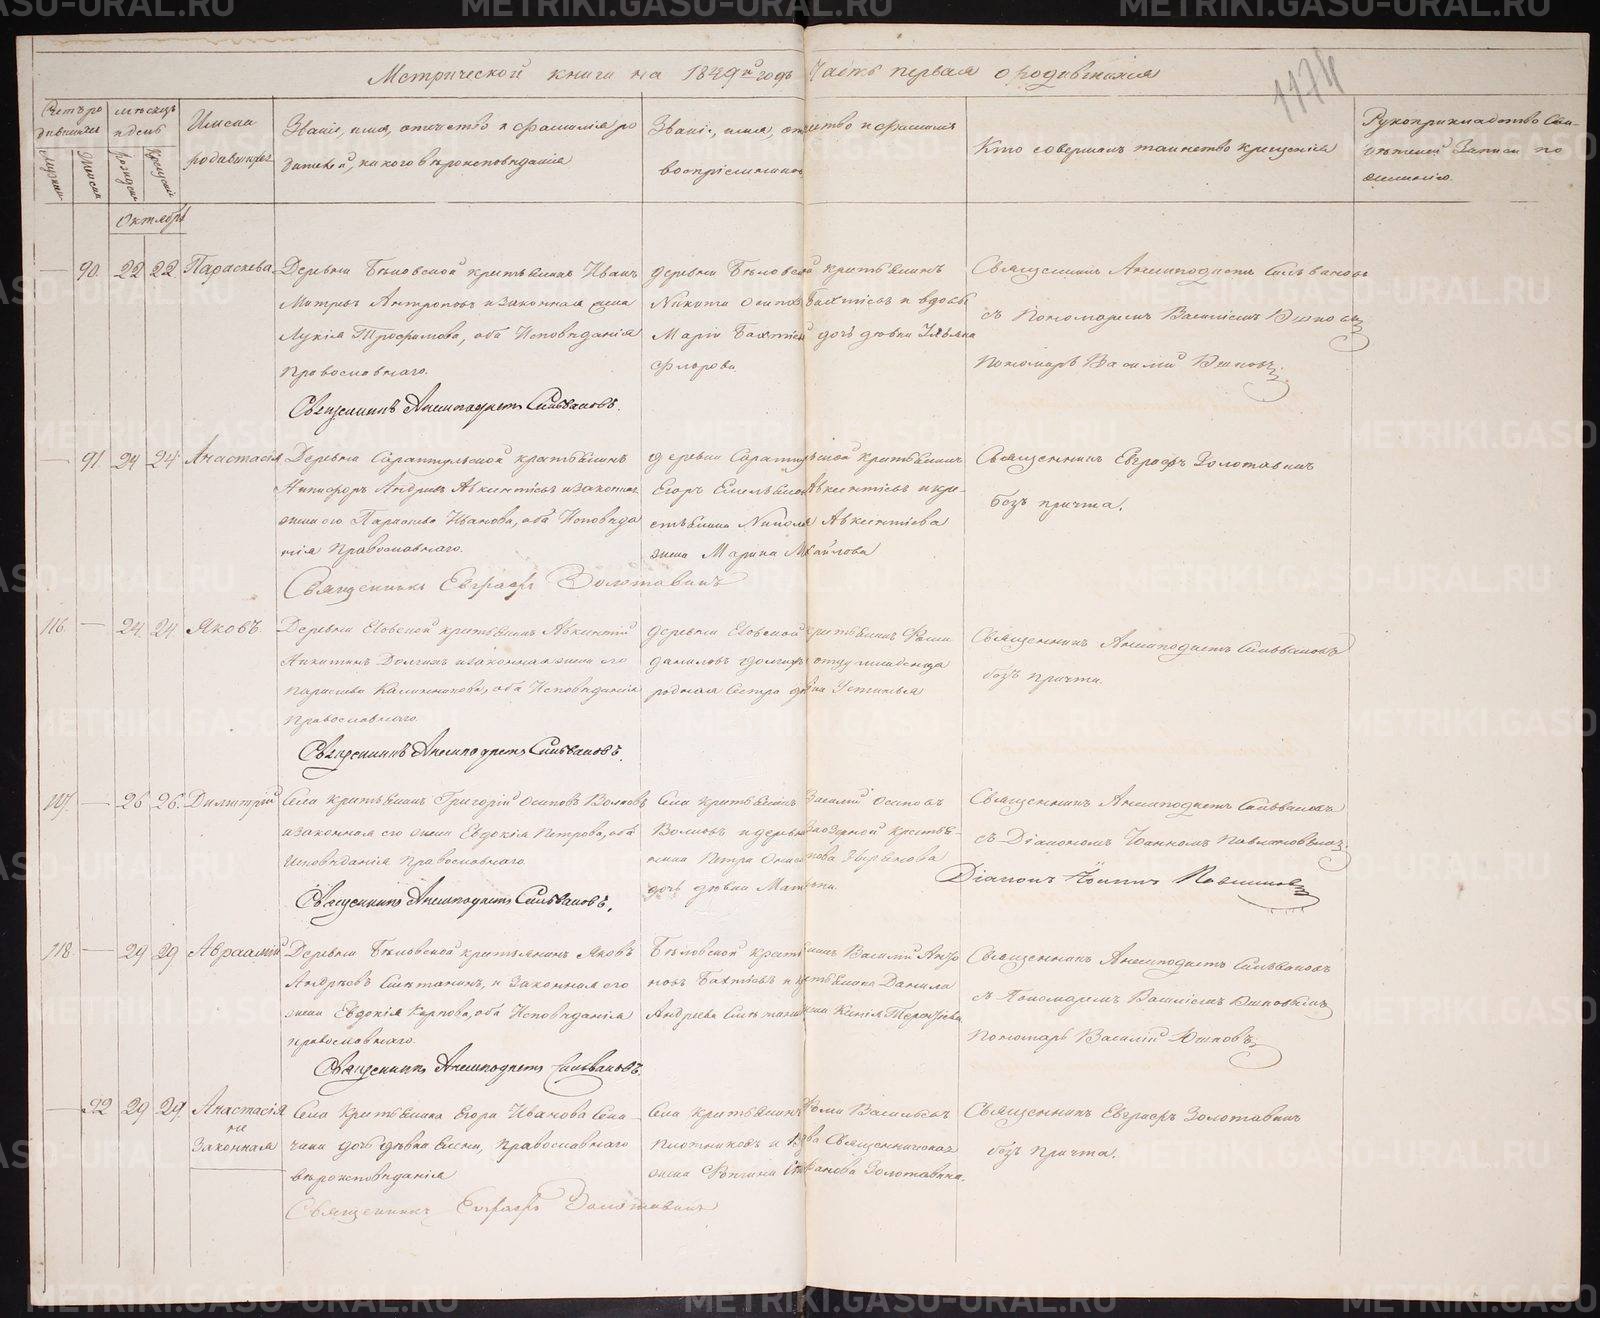 Метрической книги на 1849й годъ Часть первая о родившихся
1174
Счетъ родившихся
Мужеска
Женска
мѣсяцъ и день
рожденія
крещенія
Имена родившихся
Званіе, имя, отчество и фамилія ро
дителей, и какого вѣроисповѣданія
Званіе, имя, отчество и фамилія
воспріемниковъ
Кто совершалъ таинство крещенія
Рукоприкладство сви-
дѣтелей записи по
желанію.
Октябрь
90. 22 22 Параскева
Деревни Бѣловской крестьянинъ Иванъ
Митревъ Антроповъ и законная жена
Лукія Трофимова, оба Исповѣданія
Православнаго.
Священникъ Анемподистъ Сильвановъ.
деревни Бѣловской крестьянинъ
Никита Осиповъ Бахтіевъ и вдовы
Маріи дочь дѣвка Ульяна
Флорова.
Священникъ Анемподистъ Сильвановъ
съ Пономаремъ Василіемъ Юшковымъ
Пономарь Василій Юшковъ
91 24 24 Анастасія
Деревни крестьянинъ
Никифоръ Андреевъ Авксентіевъ и законная
жена его Параскева Иванова, оба Исповѣда
нія Православнаго.
Священникъ Евграфъ Золотавинъ
деревни крестьянинъ
Егоръ Емельяновъ Авксентіевъ и кре-
стьянина Николая Авксентіева
жена Марина Михайлова
Священникъ Евграфъ Золотавинъ
безъ причта.
116. 24. 24 Яковъ.
Деревни крестьянинъ Авксентій
Никитинъ Долгихъ и законная жена его
Параскева Калинникова, оба Исповѣданія
Православнаго.
Священникъ Анемподистъ Сильвановъ.
деревни крестьянинъ
Даниловъ Долгихъ отцу младенца
родная сестра дѣвка Устинья
Священникъ Анемподистъ Сильвановъ
безъ причта.
117. 26 26. Димитрій
Села крестьянинъ Григорій Осиповъ Волковъ
и законная его жена Евдокія Петрова, оба
Исповѣданія Православнаго.
Священникъ Анемподистъ Сильвановъ.
Села крестьянинъ Василій Осиповъ
Волковъ и деревни Заозерной крестья-
нина Петра
дочь дѣвка Матрена.
Священникъ Анемподистъ Сильвановъ
съ Діакономъ Іоанномъ Павлиновымъ
Діаконъ Іоаннъ Павлиновъ
118. 29 29 Авраамій
Деревни Бѣловской крестьянинъ Яковъ
Андреевъ Смѣтанинъ, и законная его
жена Евдокія Карпова, оба Исповѣданія
православнаго.
Священникъ Анемподистъ Сильвановъ.
Бѣловской крестьянинъ Василій
Бахтіевъ и крестьянина Данила
Андреева Смѣтанина жена Ксенія Терентіева
Священникъ Анемподистъ Сильвановъ
съ Пономаремъ Василіемъ Юшковымъ
Пономарь Василій Юшковъ
92 29 29. Анастасія
не
Законная
Села Крестьянина Егора Иванова
дочь дѣвка Елена, православнаго
вѣроисповѣданія
Священникъ Евграфъ Золотавинъ
Села крестьянинъ Васильевъ
Плотниковъ и Священническая
жена Золотавина.
Священникъ Евграфъ Золотавинъ
безъ причта.
METRIKI.GASO-URAL.RU